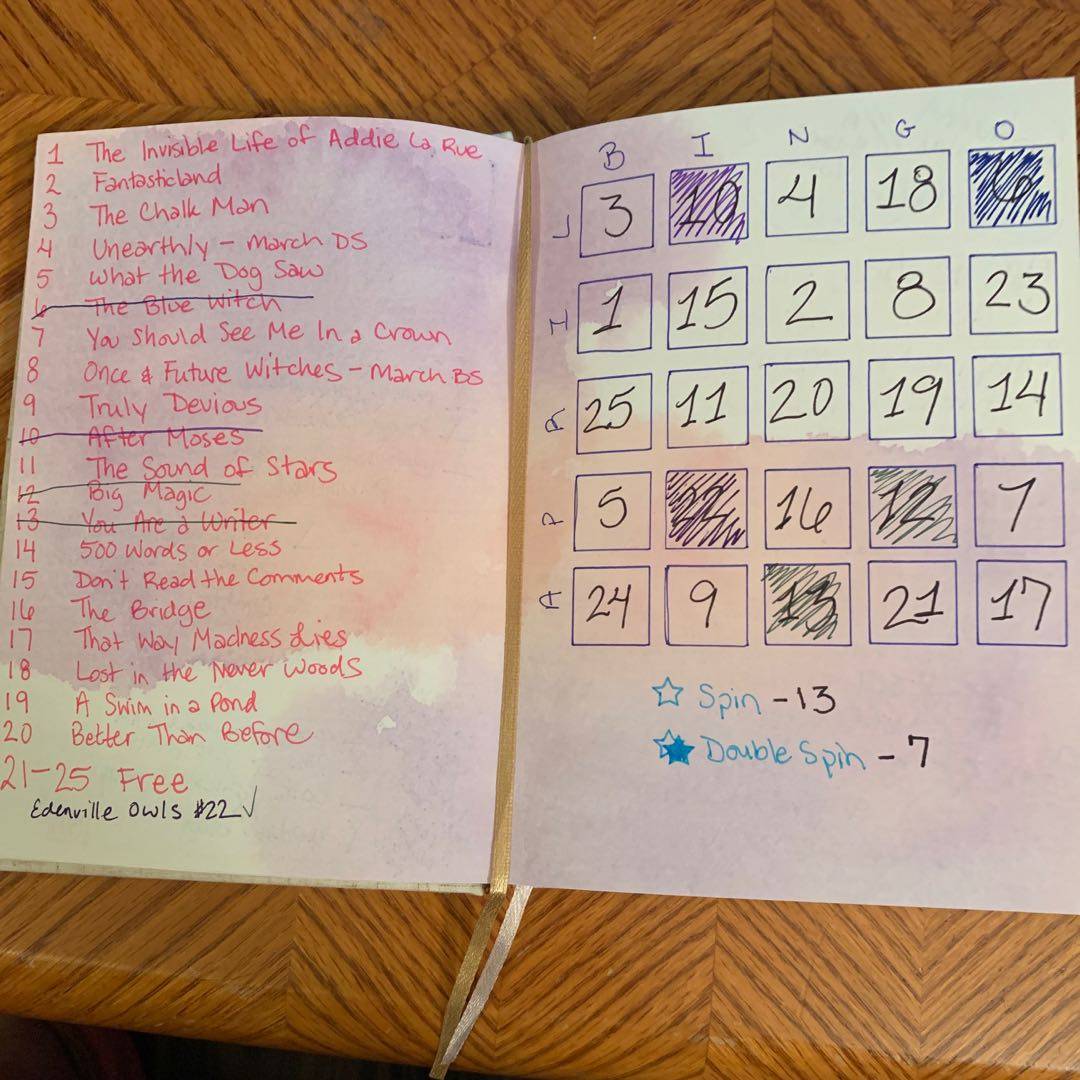 1 The Invisible Life of Addie La Rue
2 Fantasticland
3 The Chalk Man
4 Unearthly - March DS
5 What the Dog Saw
6 The Blue Witch
7 You Should See Me In a Crown
8 Once & Future Witches - March BS
9 Truly Devious
10 After Moses
11 The Sound of Stars
12 Big Magic
13 You Are a Writer
14 500 Words or Less
15 Don't Read the Comments
16 The Bridge
17 That Way Madness Lies
18 Lost in the Never Woods
19 A Swim in a Pond
20 Better Than Before
21-25 Free
Edenville Owls #22 ✓
B I N G O
L 3 10 4 18 6
H 1 15 2 8 23
R 25 11 20 19 14
P 5 22 16 12 7
A 24 9 13 21 17
☆ Spin - 13
☆★ Double Spin - 7